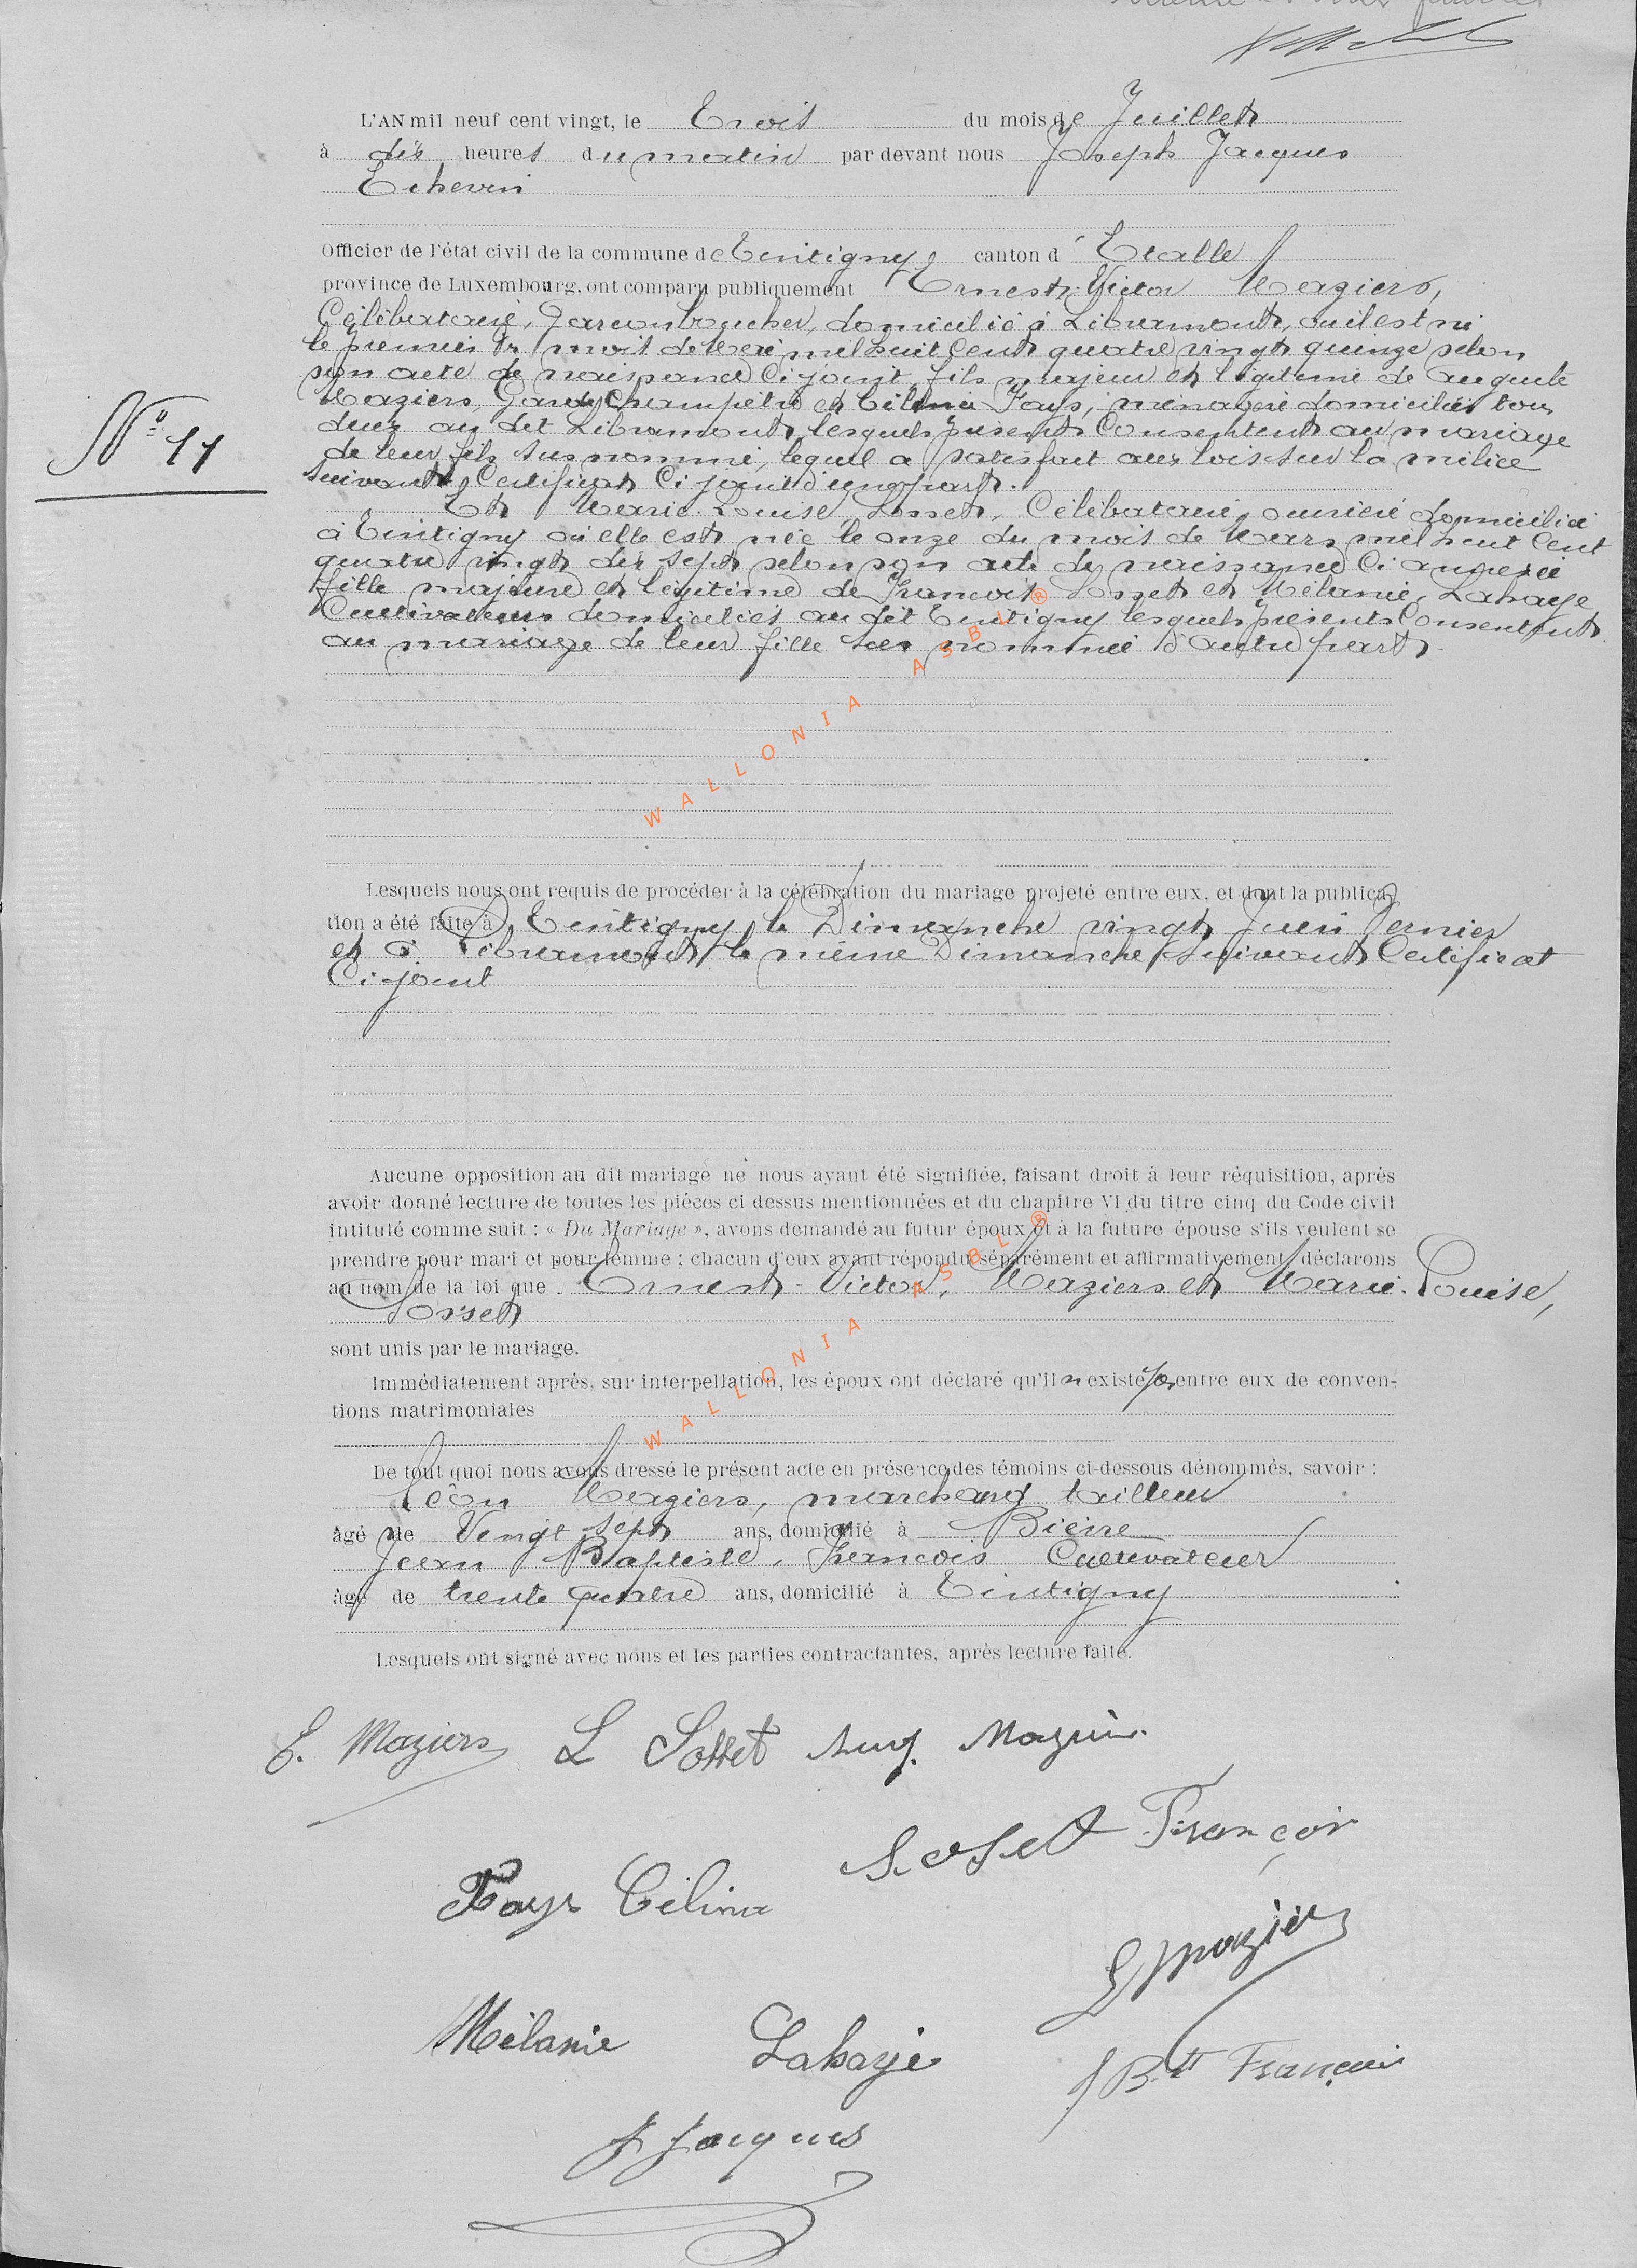 L'AN mil neuf cent vingt, le Trois du mois de Juillet
à dix heures du matin par devant nous Joseph Jacques
Echevin
Officier de l'état civil de la commune de Tintigny canton d'Etalle
province de Luxembourg, ont comparu publiquement Ernest Victor Maziers,
Célibataire, Garçon boucher, domicilié à Libramont, où il est né
le premier du mois de Mai mil huit cent quatre vingt quinze selon
son acte de naissance ci joint, fils majeur et légitime de Auguste
Maziers, Garde Champêtre et Célina Fays, ménagère domiciliés tous
deux au dit Libramont, lesquels présents consentent au mariage
de leur fils sus nommé, lequel a satisfait aux lois sur la milice
suivant Certificat Ci joint d'une part.
Et Marie Louise Sosset, Célibataire, ouvrière domiciliée
à Tintigny où elle est née le onze du mois de Mars mil huit Cent
quatre vingt dix sept selon son acte de naissance Ci annexée
fille majeure et légitime de François Sosset et Mélanie Lahaye
Cultivateurs domiciliés au dit Tintigny lesquels présents Consentent
au mariage de leur fille sus nommée d'autre part.
Nº 11
WALLONIA ASBL ®
Lesquels nous ont requis de procéder à la célébration du mariage projeté entre eux, et dont la publica-
tion a été faite à Tintigny le Dimanche vingt Juin dernier
et à Libramont le même Dimanche suivant Certificat
Ci joint
Aucune opposition au dit mariage ne nous ayant été signifiée, faisant droit à leur réquisition, après
avoir donné lecture de toutes les pièces ci dessus mentionnées et du chapitre VI du titre cinq du Code civil
intitulé comme suit : « Du Mariage », avons demandé au futur époux et à la future épouse s'ils veulent se
prendre pour mari et pour femme ; chacun d'eux ayant répondu séparément et affirmativement, déclarons
au nom de la loi que Ernest-Victor, Maziers et Marie-Louise,
Sosset
sont unis par le mariage.
WALLONIA ASBL ®
Immédiatement après, sur interpellation, les époux ont déclaré qu'il n'existe pas entre eux de conven-
tions matrimoniales
De tout quoi nous avons dressé le présent acte en présence des témoins ci-dessous dénommés, savoir :
Léon Maziers, marchand tailleur
âgé de Vingt sept ans, domicilié à Bièvre
Jean Baptiste, François Cultivateur
âgé de trente quatre ans, domicilié à Tintigny
Lesquels ont signé avec nous et les parties contractantes, après lecture faite.
E. Maziers L Sosset Aug. Maziers
Sosset François
Fays Célina
L Maziers
Mélanie Lahaye
J Bte François
J Jacques